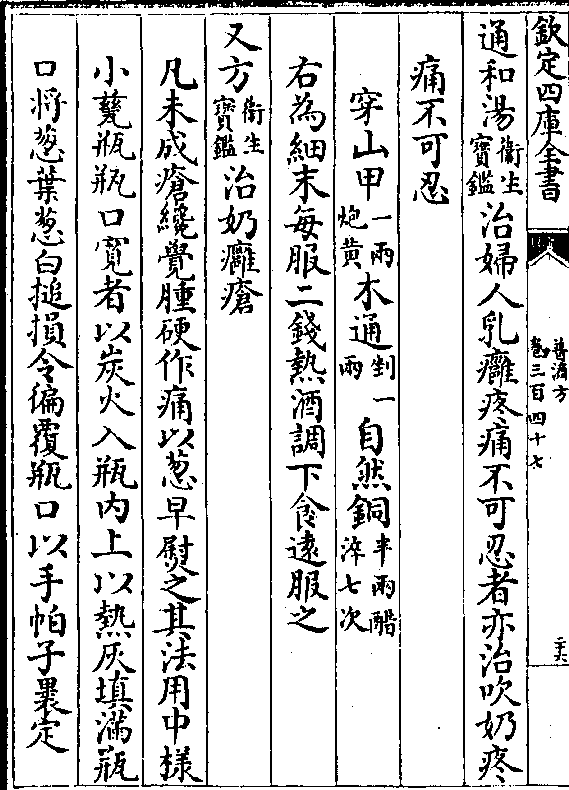 欽定四庫全書
普濟方
卷三百四十七
通和湯衞生寶鑑治婦人乳癰疼痛不可忍者亦治吹奶疼
痛不可忍
穿山甲一兩炮黄木通一兩剉自然銅半兩醋淬七次
右為細末每服二錢熱酒調下食逺服之
又方衞生寶鑑治奶癰瘡
凡未成瘡纔覺腫硬作痛以葱早熨之其法用中様
小甆瓶瓶口寛者以炭火入瓶内上以熱灰填滿瓶
口将葱葉葱白搥損令徧覆瓶口以手帕子褁定